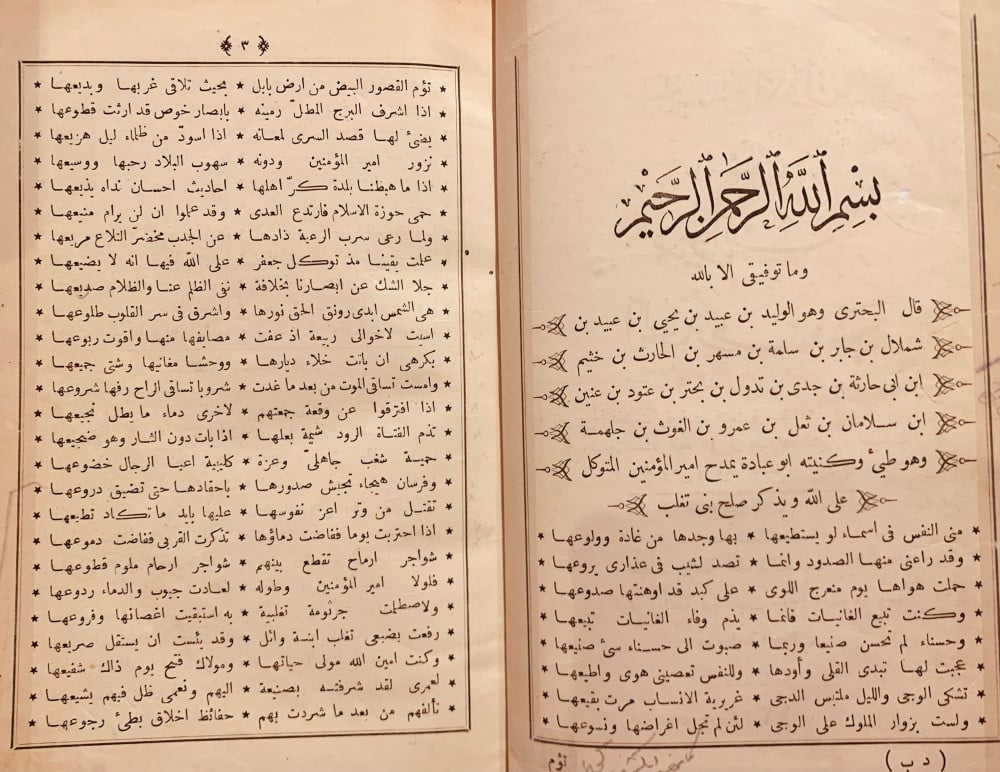 بِسْمِ ٱللّٰهِ ٱلرَّحْمٰنِ ٱلرَّحِيْمِ
وما توفيقى الا بالله
قال البحترى وهو الوليد بن عبيد بن يحيى بن عبيد بن
شملال بن جابر بن سلمة بن مسهر بن الحارث بن خثيم
ابن ابى حارثة بن جدى بن تدول بن بحتر بن عتود بن عنين
ابن سلامان بن ثعل بن عمرو بن الغوث بن جلهمة
وهو طيئ وكنيته ابو عبادة يمدح امير المؤمنين المتوكل
على الله ويذكر صلح بنى تغلب
* منى النفس فى اسماء لو يستطيعها * بها وجدها من غادة وولوعها *
* وقد راعنى منها الصدود وانما * تصد لشيب فى عذارى يروعها *
* حملت هواها يوم منعرج اللوى * على كبد قد اوهنتها صدوعها *
* وكنت تبيع الغانيات فانما * يذم وفاء الغانيات تبيعها *
* وحسناء لم تحسن صنيعا وربما * صبوت الى حسناء سئ صنيعها *
* عجبت لها تبدى القلى وأودها * وللنفس تعصينى هوى واطيعها *
* تشكى الوجى والليل ملتبس الدجى * غريرية الانساب مرت بقيعها *
* ولست بزوار الملوك على الوجى * لئن لم تجل اغراضها ونسوعها *
( د ب ) تؤم
﴿ ٣ ﴾
* تؤم القصور البيض من ارض بابل * بحيث تلاقى غربها وبديعها *
* اذا اشرف البرج المطلّ رمينه * بابصار خوص قد ارثت قطوعها *
* يضئ لها قصد السرى لمعانه * اذا اسودّ من ظلماء ليل هزيعها *
* نزور امير المؤمنين ودونه * سهوب البلاد رحبها ووسيعها *
* اذا ما هبطنا بلدة كرّ اهلها * احاديث احسان نداه يذيعها *
* حمى حوزة الاسلام فارتدع العدى * وقد علموا ان لن يرام منيعها *
* ولما رعى سرب الرعية ذادها * عن الجدب مخضرّ التلاع مريعها *
* علمت يقينا مذ توكل جعفر * على الله فيها انه لا يضيعها *
* جلا الشك عن ابصارنا بخلافة * نفى الظلم عنا والظلام صديعها *
* هى الشمس ابدى رونق الحق نورها * واشرق فى سر القلوب طلوعها *
* اسيت لاخوالى ربيعة اذ عفت * مصايفها منها واقوت ربوعها *
* بكرهى ان باتت خلاء ديارها * ووحشا مغانيها وشتى جميعها *
* وامست تساقى الموت من بعد ما غدت * شروبا تساقى الراح رفها شروعها *
* اذا افترقوا عن وقعة جمعتهم * لاخرى دماء ما يطل نجيعها *
* تذم الفتاة الرود شيمة بعلها * اذا بات دون الثار وهو ضجيعها *
* حمية شغب جاهلىّ وعزة * كليبية اعيا الرجال خضوعها *
* وفرسان هيجاء تجيش صدورها * باحقادها حتى تضيق دروعها *
* تقتل من وتر اعز نفوسها * عليها بايد ما تكاد تطيعها *
* اذا احتربت يوما ففاضت دماؤها * تذكرت القربى ففاضت دموعها *
* شواجر ارماح تقطع بينهم * شواجر ارحام ملوم قطوعها *
* فلولا امير المؤمنين وطوله * لعادت جيوب والدماء ردوعها *
* ولاصطلمت جرثومة تغلبية * به استبقيت اغصانها وفروعها *
* رفعت بضبعى تغلب ابنة وائل * وقد يئست ان يستقل صريعها *
* وكنت امين الله مولى حياتها * ومولاك فتح يوم ذاك شفيعها *
* لعمرى لقد شرفته بصنيعة * اليهم ونعمى ظل فيهم يشيعها *
* تألفهم من بعد ما شردت بهم * حفائظ اخلاق بطئ رجوعها *